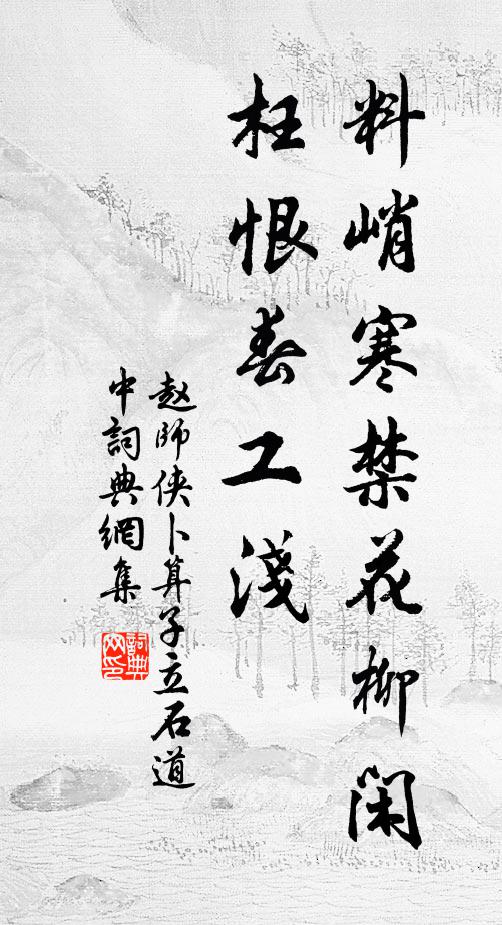 料峭寒禁花柳闲
枉恨春工浅
赵师侠卜算子立石道
中词典網集
詞典
网印